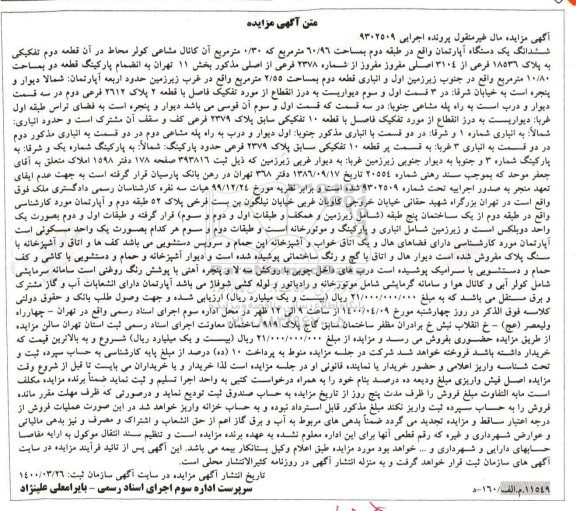 متن آگهی مزایده
آگهی مزایده مال غیرمنقول پرونده اجرایی ۹۳۰۲۵۰۹
ششدانگ یک دستگاه آپارتمان واقع در طبقه دوم بمساحت ۶۰/۹۶ مترمربع که ۰/۳۰ مترمربع آن کانال مشاعی کولر محاط در آن قطعه دوم تفکیکی
به پلاک ۱۸۵۳۶ فرعی از ۳۱۰۴ اصلی مفروز مفروز از شماره ۲۳۷۸ فرعی از اصلی مذکور بخش ۱۱ تهران به انضمام پارکینگ قطعه دو بمساحت
۱۰/۸۰ مترمربع واقع در جنوب زیرزمین اول و انباری قطعه دوم بمساحت ۲/۵۵ مترمربع واقع در غرب زیرزمین حدود اربعه آپارتمان: شمالا دیوار و
پنجره است به خیابان شرقا: در ۳ قسمت اول و سوم دیواریست به درز انقطاع از مورد تفکیک فاصل با قطعه ۲ پلاک ۲۶۱۲ فرعی دوم در سه قسمت
دیوار و درب است به راه پله مشاعی جنوبا: در سه قسمت که قسمت اول و سوم آن قوسی می باشد دیوار و پنجره است به فضای تراس طبقه اول
غربا: دیواریست به درز انقطاع از مورد تفکیک فاصل با قطعه ۱۰ تفکیکی سابق پلاک ۲۳۷۹ فرعی کف و سقف آن مشترک است و حدود انباری:
شمالاً: به انباری شماره ۱ و شرقا: در دو قسمت با انباری مذکور جنوبا: اول دیوار و درب به راه پله مشاعی دوم در دو قسمت به انباری مذکور دوم
در دو قسمت به انباری ۳ غربا: به قسمت بر قطعه ۱۰ تفکیکی سابق پلاک ۲۳۷۹ فرعی حدود پارکینگ: شمالاً: به پارکینگ شماره یک و شرقا: به
پارکینگ شماره ۳ و جنوبا به دیوار جنوبی زیرزمین غربا: به دیوار غربی زیرزمین که ذیل ثبت ۳۹۳۸۱۶ صفحه ۱۷۸ دفتر ۱۵۹۸ املاک متعلق به آقای
جعفر موحد که بموجب سند رهنی شماره ۲۰۵۵۴ تاریخ ۱۳۸۶/۰۹/۱۷ دفتر ۳۶۸ تهران در رهن بانک پارسیان قرار گرفته است به جهت عدم ایفای
تعهد منجر به صدور اجراییه تحت شماره ۹۳۰۲۵۰۹ شده است برابر نظریه مورخ ۹۹/۱۲/۲۴ هیات سه نفره کارشناسان رسمی دادگستری ملک فوق
واقع است در تهران بزرگراه شهید حقانی خیابان خروجی گاویان غربی خیابان نیلگون بن بست فرخی پلاک ۵۲ طبقه دوم و آپارتمان مورد کارشناسی
واقع در طبقه دوم از یک ساختمان پنج طبقه (شامل زیرزمین و همکف و طبقات اول و دوم و سوم) قرار گرفته و طبقات اول و دوم بصورت یک
واحد دوبلکس است و زیرزمین شامل انباری و پارکینگ و موتورخانه است و طبقات دوم و سوم هر کدام بصورت یک واحد مسکونی است
آپارتمان مورد کارشناسی دارای فضاهای هال و یک اتاق خواب و آشپزخانه این حمام و سرویس دستشویی می باشد کف ها و اتاق و آشپزخانه با
سنگ پلاک مفروش شده است دیوار هال و اتاق با گچ و رنگ ساختمانی پوشیده شده است و دیوار آشپزخانه و حمام و دستشویی با کاشی و کف
حمام و دستشویی با سرامیک پوشیده است درب های داخل چوبی با روکش سه لا و پنجره آهنی با پوشش رنگ روغنی است سامانه سرمایشی
شامل کولر آبی و کانال هوا و سامانه گرمایشی شامل موتورخانه و رادیاتور و لوله کشی شوفاژ می باشد آپارتمان دارای انشعابات آب و گاز مشترک
و برق مستقل می باشد که به مبلغ ۲۱/۰۰۰/۰۰۰/۰۰۰ ریال (بیست و یک میلیارد ریال) ارزیابی شده و جهت وصول طلب بانک و حقوق دولتی
کلاسه فوق الذکر در روز چهارشنبه مورخ ۱۴۰۰/۰۴/۰۹ از ساعت ۹ الی ۱۲ ظهر در محل اداره سوم اجرای اسناد رسمی واقع در تهران - چهارراه
ولیعصر (عج) – خ انقلاب نبش خ برادران مظفر ساختمان سابق گاج پلاک ۹۱۹ ساختمان معاونت اجرای اسناد رسمی ثبت استان تهران سالن مزایده
از طریق مزایده حضوری بفروش می رسد و مزایده از مبلغ ۲۱/۰۰۰/۰۰۰/۰۰۰ ریال (بیست و یک میلیارد ریال) شروع و به بالاترین قیمت که
خریدار داشته باشد فروخته خواهد شد شرکت در جلسه مزایده منوط به پرداخت ۱۰ (ده) درصد از مبلغ پایه کارشناسی به حساب سپرده ثبت و
تحت شناسه واریز اعلامی و حضور خریدار یا نماینده قانونی او در جلسه مزایده است لذا خریدار و یا خریداران می بایست تا قبل از شروع وقت
مزایده اصل فیش واریزی مبلغ ودیعه ده درصد بنام خود را به همراه درخواست کتبی به واحد اجرا تسلیم و ثبت نماید ضمناً برنده مزایده مکلف
است مابه التفاوت مبلغ فروش را ظرف مدت پنج روز از تاریخ مزایده به حساب صندوق ثبت تودیع نماید و درصورتی که ظرف مهلت مقرر مانده
فروش را به حساب سپرده ثبت واریز نکند مبلغ مذکور قابل استرداد نبوده و به حساب خزانه واریز خواهد شد در این صورت عملیات فروش از
درجه اعتبار ساقط و مزایده تجدید می گردد ضمناً بدهی های مربوط به آب و برق گاز اعم از حق انشعاب و اشتراک و مصرف و نیز بدهی مالیاتی
و عوارض شهرداری و غیره که رقم قطعی آنها برای این اداره معلوم نشده به عهده برنده مزایده است و تنظیم سند انتقال موکول به ارایه مفاصا
حسابهای دارایی و شهرداری و ... خواهد بود مورد مزایده طبق اعلام وکیل بستانکار بیمه می باشد. این آگهی پس از تائید فرآیند مزایده در سایت
آگهی های سازمان ثبت قرار خواهد گرفت و به منزله انتشار آگهی در روزنامه کثیرالانتشار محلی است.
تاریخ انتشار آگهی مزایده در سایت آگهی سازمان ثبت: ۱۴۰۰/۰۳/۲۶
سرپرست اداره سوم اجرای اسناد رسمی - بایرامعلی علینژاد
۱۱۵۴۹/م الف/۱۶۰-د